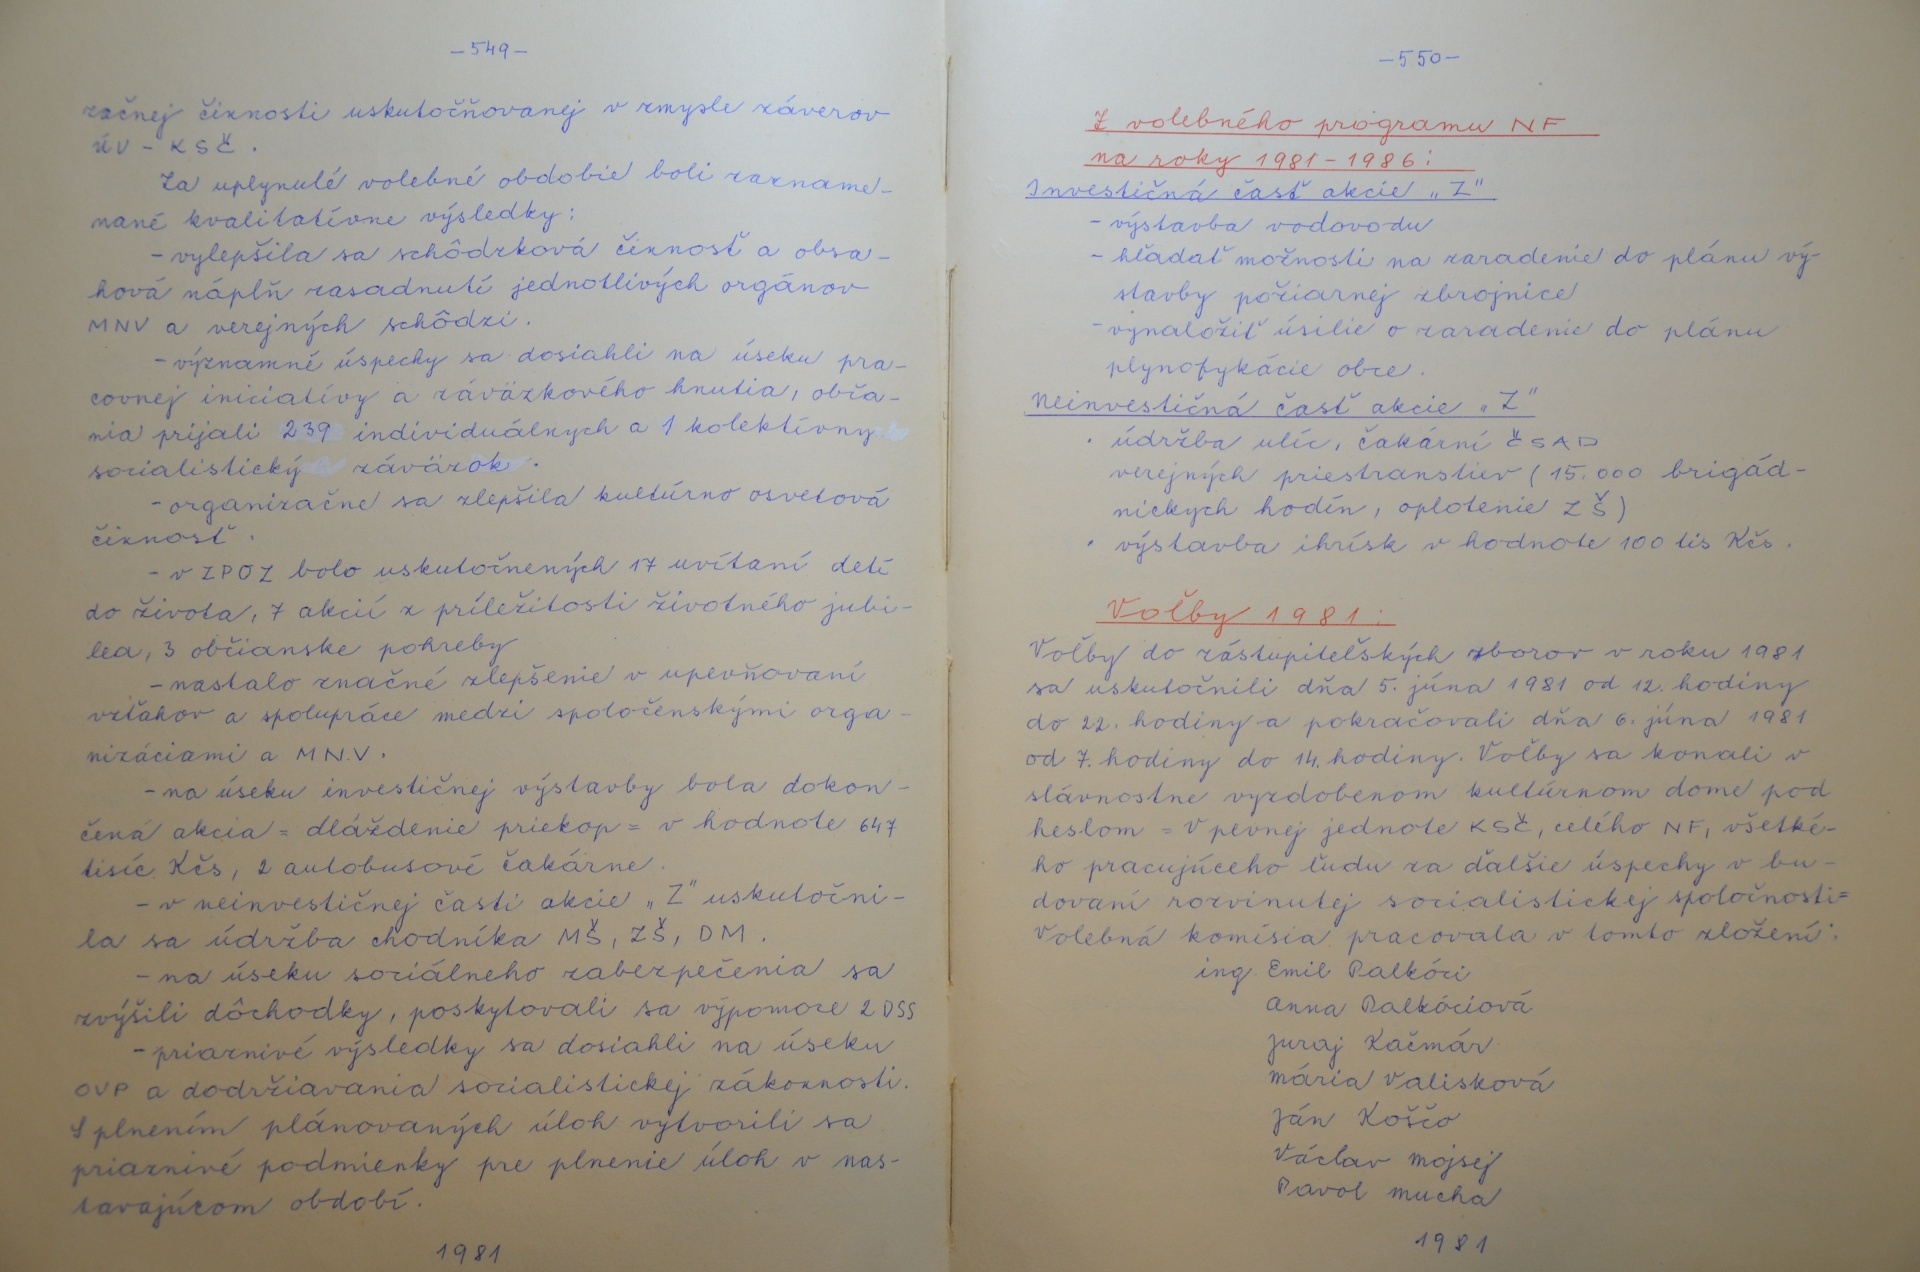 -549-
začnej činnosti uskutočňovanej v zmysle záverov
ÚV - KSČ.
Za uplynulé volebné obdobie boli zazname-
nané kvalitatívne výsledky:
- vylepšila sa schôdzková činnosť a obsa-
hová náplň zasadnutí jednotlivých orgánov
MNV a verejných schôdzi.
- významné úspechy sa dosiahli na úseku pra-
covnej iniciatívy a záväzkového hnutia, obča-
nia prijali 239 individuálnych a 1 kolektívny
socialistický záväzok.
- organizačne sa zlepšila kultúrno osvetová
činnosť.
- v ZPOZ bolo uskutočnených 17 uvítaní detí
do života, 7 akcií z príležitosti životného jubi-
lea, 3 občianske pohreby
- nastalo značné zlepšenie v upevňovaní
vzťahov a spolupráce medzi spoločenskými orga-
nizáciami a MNV.
- na úseku investičnej výstavby bola dokon-
čená akcia = dláždenie priekop = v hodnote 647
tisíc Kčs, 2 autobusové čakárne.
- v neinvestičnej časti akcie „Z" uskutočni-
la sa údržba chodníka MŠ, ZŠ, DM.
- na úseku sociálneho zabezpečenia sa
zvýšili dôchodky, poskytovali sa výpomoce 2 DSS
- priaznivé výsledky sa dosiahli na úseku
OVP a dodržiavania socialistickej zákonnosti.
S plnením plánovaných úloh vytvorili sa
priaznivé podmienky pre plnenie úloh v nas-
tavajúcom období.
1981
-550-
Z volebného programu NF
na roky 1981-1986:
Investičná časť akcie „Z"
- výstavba vodovodu
- hľadať možnosti na zaradenie do plánu vý-
stavby požiarnej zbrojnice
- vynaložiť úsilie o zaradenie do plánu
plynofykácie obce.
Neinvestičná časť akcie „Z"
· údržba ulíc, čakární ČSAD
verejných priestranstiev (15.000 brigád-
nickych hodín, oplotenie ZŠ)
· výstavba ihrísk v hodnote 100 tis Kčs.
Voľby 1981:
Voľby do zástupiteľských zborov v roku 1981
sa uskutočnili dňa 5. júna 1981 od 12. hodiny
do 22. hodiny a pokračovali dňa 6. júna 1981
od 7. hodiny do 14. hodiny. Voľby sa konali v
slávnostne vyzdobenom kultúrnom dome pod
heslom = V pevnej jednote KSČ, celého NF, všetké-
ho pracujúceho ľudu za ďalšie úspechy v bu-
dovaní rozvinutej socialistickej spoločnosti=
Volebná komisia pracovala v tomto zložení:
ing. Emil Palkóci
Anna Palkóciová
Juraj Kačmár
Mária Valisková
Ján Koščo
Václav Mojsej
Pavol Mucha
1981